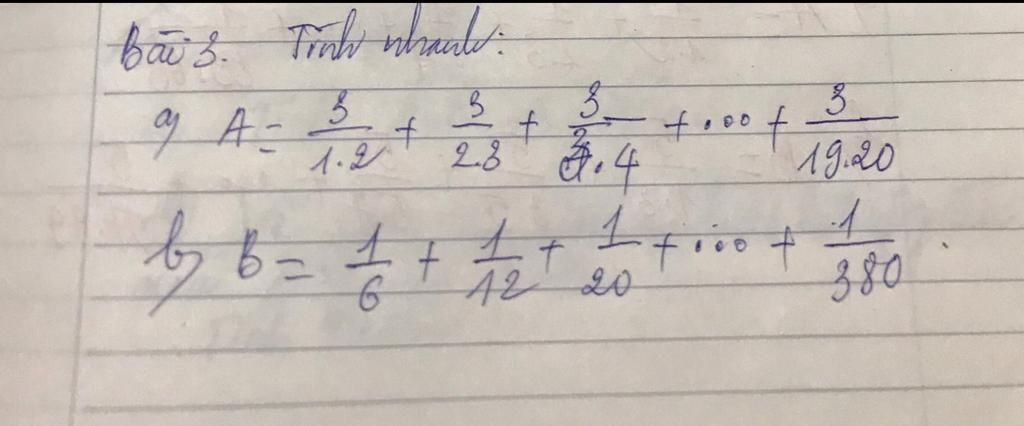 Bài 3. Tính nhanh:
a) A = 3/1.2 + 3/2.3 + 3/3.4 + ... + 3/19.20
b) B = 1/6 + 1/12 + 1/20 + ... + 1/380.